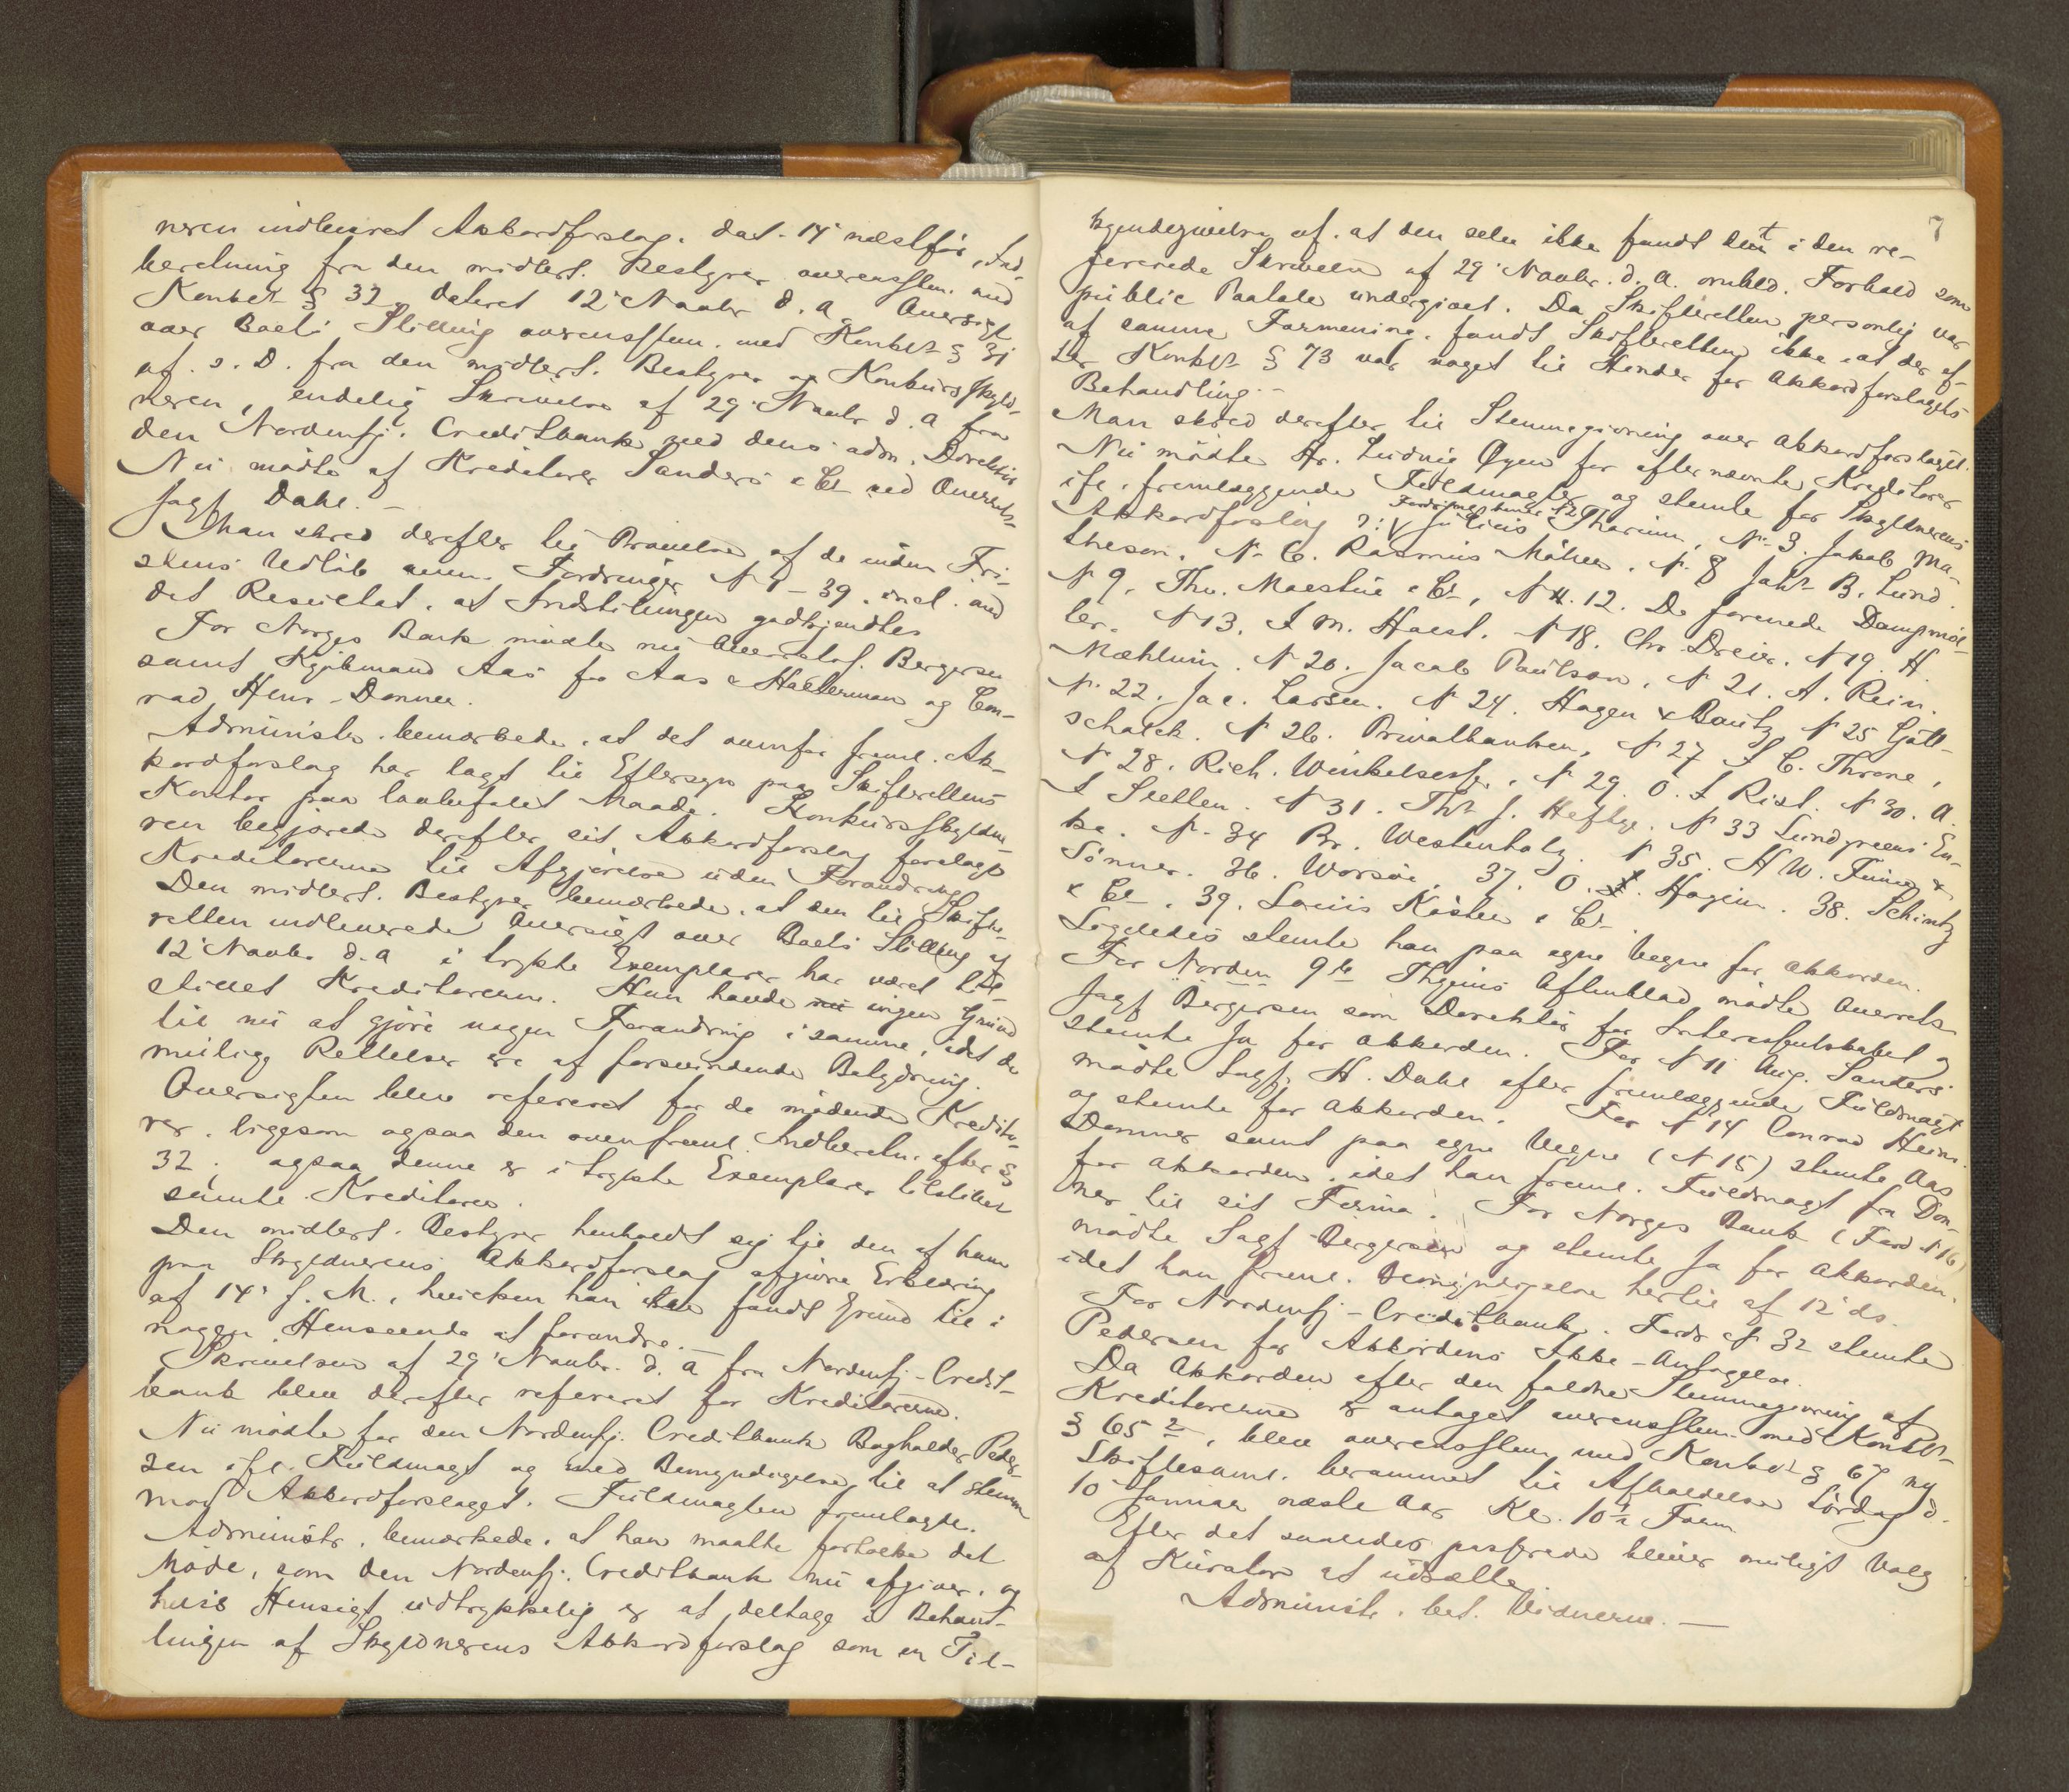 neren indleveret Akkordforslag. dat. 14' næstfør, Ind-
beretning fra den midlert. Bestyrer overensstem. med
Konkl. § 32, dateret 12' Novbr d. a., Oversigt
over Boets Stilling overensstem. med Konkl. § 31
af s. D. fra den midlert. Bestyrer og Konkursskyld-
neren, endelig Skrivelse af 29' Novbr d. a fra
den Nordenfj. Creditbank ved dens adm. Direktør
Nu mødte af Kreditorer Sanders & Co ved Overrets-
sagf Dahl. -
Man skred derefter til Prøvelse af de inden Fri-
stens Udløb anm. Fordringer No 1 - 39. incl. med
det Resultat, at Indstillingen godkjendtes
For Norges Bank mødte nu Overretssf. Bergersen
samt Kjøbmand Aas for Aas & Halterman og Con-
rad Henr. Donner.
Administr. bemærkede, at det ovenfor freml. Ak-
kordforslag har lagt til Eftersyn paa Skifterettens
Kontor paa lovbefalet Maade. Konkursskyldne-
ren begjærede derefter sit Akkordforslag forelagt
Kreditorerne til Afgjørelse uden Forandring
Den midlert. Bestyrer bemærkede, at den til Skifte-
retten indleverede Oversigt over Boets Stilling af
12' Novbr d. a i trykte Exemplarer har været til-
stillet Kreditorerne. Han havde nu ingen Grund
til nu at gjøre nogen Forandring i samme, idet de
mulige Rettelser er af forsvindende Betydning.
Oversigten blev refereret for de mødende Kredito-
rer, ligesom ogsaa den ovenfreml. Indberetn. efter §
32. ogsaa denne er i trykte Exemplarer tilstillet
samtl. Kreditorer.
Den midlert. Bestyrer henholdt sig til den af ham
paa Skyldnerens Akkordforslag afgivne Erklæring
af 14' f. M., hvilken han ikke fandt Grund til i
nogen Henseende at forandre. -
Skrivelsen af 29' Novbr. d. a fra Nordenfj. Credit-
bank blev derefter refereret for Kreditorerne.
Nu mødte for den Nordenfj. Creditbank Bogholder Peder-
sen ifl. Fuldmagt og med Bemyndigelse til at stemme
mod Akkordforslaget. Fuldmagten fremlagdes.
Administr. bemærkede, at han maatte fortolke det
Møde, som den Nordenfj. Creditbank nu afgiver, og
hvis Hensigt udtrykkelig er at deltage i Behand-
lingen af Skyldnerens Akkordforslag som en Til-
7
kjendegivelse af, at den selv ikke fandt det i den re-
fererede Skrivelse af 29' Novbr. d. a. omhld. Forhold som
public Paatale undergivet. Da Skifteretten personlig var
af samme Formening, fandt Skifteretten ikke, at der ef-
ter Konkl. § 73 var noget til Hinder for Akkordforslagets
Behandling. -
Man skred derefter til Stemmegivning over Akkordforslaget.
Nu mødte Hr. Ludvig Øyen for efternævnte Kreditorer
ifl. fremlæggende Fuldmagter og stemte for Skyldnerens
Fordring No 2
Akkordforslag ɔ: Julius Tharum, No 3. Jakob Ma-
theson. No 6. Rasmus Møller. No 8 Johs B. Lund.
No 9. Thv. Moestue & Co, No 12. De forenede Dampmøl-
ler. No 13. I M. Holst. No 18. Chr. Dreier. No 19. H.
Mæhlum. No 20. Jacob Paulson. No 21. A. Rein.
No 22. Jac. Larsen. No 24. Hagen & Bautz No 25 Gott-
schalck. No 26. Privatbanken, No 27 I C. Throne,
No 28. Rich. Winkelsesse, No 29. O. I Rist. No 30. A.
I Stetten. No 31. Ths J. Heftye. No 33 Lundgreens En-
ke. No 34 Br. Westenholz. No 35. H W. Funer &
Sønner. 36. Worsøe. 37. O. I. Hagen. 38. Schintz
& Co. 39. Louis Køster & Co.
Ligeledes stemte han paa egne Vegne for Akkorden.
For Norden 9 b Thyenis Aftenblad mødte Overrets-
sagf Bergersen som Direktør for Interessentskabet og
stemte Ja for Akkorden. For No 11 Aug. Sanders
mødte Sagf. H. Dahl efter fremlæggende Fuldmagt
og stemte for Akkorden. For No 14 Conrad Heinr.
Donner samt paa egne Vegne (No 15) stemte Aas
for Akkorden, idet han freml. Fuldmagt fra Don-
ner til sit Firma. For Norges Bank (Ford No 16)
mødte Sagf. Bergersen og stemte Ja for Akkorden.
idet han freml. Bemyndigelse hertil af 12' ds.
For Nordenfj. Creditbank. Fordr No 32 stemte
Pedersen for Akkordens Ikke-Antagelse.
Da Akkorden efter den faldne Stemmegivning af
Kreditorerne er antaget overensstem. med Konkl.
§ 65 2, blev overensstem. med Konkl. § 67 ny
Skiftesaml. berammet til Afholdelse Lørdag d.
10' Januar næste Aar Kl. 10½ Form
Efter det saaledes passerede bliver muligt Valg
af Kurator at udsætte.
Administr. bet. Vidnerne. -